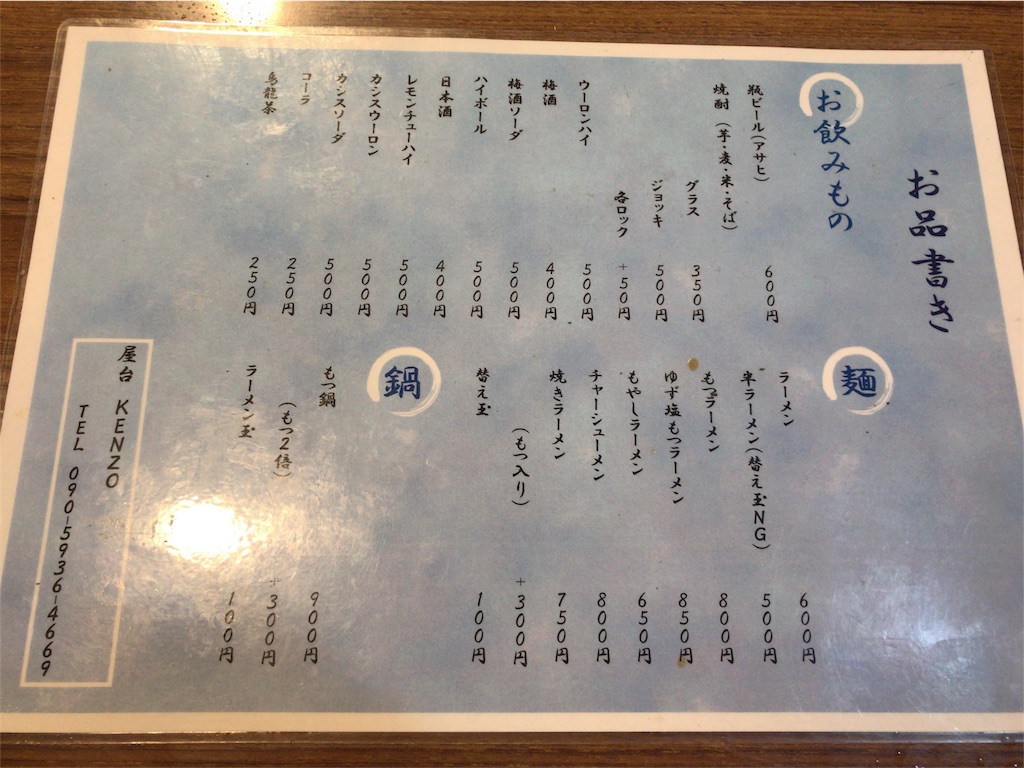 お品書き
お飲みもの
瓶ビール(アサヒ) 600円
焼酎(芋・麦・米・そば)
グラス 350円
ジョッキ 500円
各ロック +50円
ウーロンハイ 500円
梅酒 400円
梅酒ソーダ 500円
ハイボール 500円
日本酒 400円
レモンチューハイ 500円
カシスウーロン 500円
カシスソーダ 500円
コーラ 250円
烏龍茶 250円
麺
ラーメン 600円
半ラーメン(替え玉NG) 500円
もつラーメン 800円
ゆず塩もつラーメン 850円
もやしラーメン 650円
チャーシューメン 800円
焼きラーメン 750円
(もつ入り) +300円
替え玉 100円
鍋
もつ鍋 900円
(もつ2倍) +300円
ラーメン玉 100円
屋台 KENZO
TEL 090-5936-4669